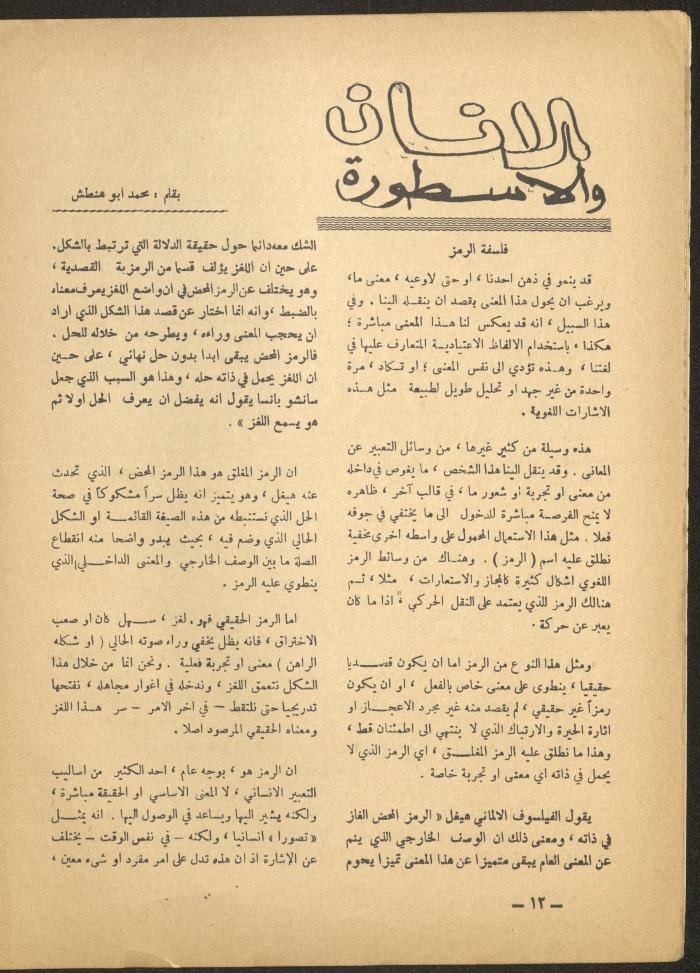 الانسان
والاسطورة
بقلم : محمد ابو هنطش
فلسفة الرمز
قد ينمو في ذهن احدنا ، او حتى لاوعيه ، معنى ما ،
ويرغب ان يحول هذا المعنى بقصد ان ينقله الينا . وفي
هذا السبيل ، انه قد يعكس لنا هذا المعنى مباشرة ؛
هكذا ، باستخدام الالفاظ الاعتيادية المتعارف عليها في
لغتنا ، وهذه تؤدي الى نفس المعنى ؛ او تكاد ، مرة
واحدة من غير جهد او تحليل طويل لطبيعة مثل هذه
الاشارات اللغوية .
هذه وسيلة من كثير غيرها ، من وسائل التعبير عن
المعاني . وقد ينقل الينا هذا الشخص ، ما يغوص في داخله
من معنى او تجربة او شعور ما ، في قالب آخر ، ظاهره
لا يمنح الفرصة مباشرة للدخول الى ما يختفي في جوفه
فعلا . مثل هذا الاستعمال المحمول على واسطه اخرى مخفية
نطلق عليه اسم ( الرمز ) . وهناك من وسائط الرمز
اللغوي اشكال كثيرة كالمجاز والاستعارات ، مثلا ، ثم
هنالك الرمز للذي يعتمد على النقل الحركي ، اذا ما كان
يعبر عن حركة .
ومثل هذا النوع من الرمز اما ان يكون قصديا
حقيقيا ، ينطوى على معنى خاص بالفعل ، او ان يكون
رمزاً غير حقيقي ، لم يقصد منه غير مجرد الاعجاز او
اثارة الحيرة والارتباك الذي لا ينتهي الى اطمئنان قط ،
وهذا ما نطلق عليه الرمز المغلق ، اي الرمز الذي لا
يحمل في ذاته اي معنى او تجربة خاصة .
يقول الفيلسوف الالماني هيغل « الرمز المحض الغاز
في ذاته ، ومعنى ذلك ان الوصف الخارجي الذي ينم
عن المعنى العام يبقى متميزا عن هذا المعنى تميزا يحوم
الشك معه دائما حول حقيقة الدلالة التي ترتبط بالشكل .
على حين ان اللغز يؤلف قسما من الرمزية القصدية ،
وهو يختلف عن الرمز المحض في ان واضع اللغز يعرف معناه
بالضبط ، وانه انما اختار عن قصد هذا الشكل الذي اراد
ان يحجب المعنى وراءه ، ويطرحه من خلاله للحل .
فالرمز المحض يبقى ابدا بدون حل نهائي ، على حين
ان اللغز يحمل في ذاته حله ، وهذا هو السبب الذي جعل
سانشو بانسا يقول انه يفضل ان يعرف الحل اولا ثم
هو يسمع اللغز » .
ان الرمز المغلق هو هذا الرمز المحض ، الذي تحدث
عنه هيغل ، وهو يتميز انه يظل سراً مشكوكاً في صحة
الحل الذي نستنبطه من هذه الصيغة القائمة او الشكل
الحالي الذي وضع فيه ، بحيث يبدو واضحا منه انقطاع
الصلة ما بين الوصف الخارجي والمعنى الداخلي الذي
ينطوي عليه الرمز .
اما الرمز الحقيقي فهو لغز ، سهل كان او صعب
الاختراق ، فانه يظل يخفي وراء صوته الحالي ( او شكله
الراهن ) معنى او تجربة فعلية . ونحن انما من خلال هذا
الشكل نتعمق اللغز ، وندخله في اغوار مجاهله ، نفتحها
تدريجيا حتى نلتقط — في اخر الامر — سر هذا اللغز
ومعناه الحقيقي المرصود اصلا .
ان الرمز هو ، بوجه عام ، احد الكثير من اساليب
التعبير الانساني ، لا المعنى الاساسي او الحقيقة مباشرة ،
ولكنه يشير اليها ويساعد في الوصول اليها . انه يمثل
« تصورا » انسانيا ، ولكنه — في نفس الوقت — يختلف
عن الإشارة اذ ان هذه تدل على امر مفرد او شىء معين ،
— ١٢ —